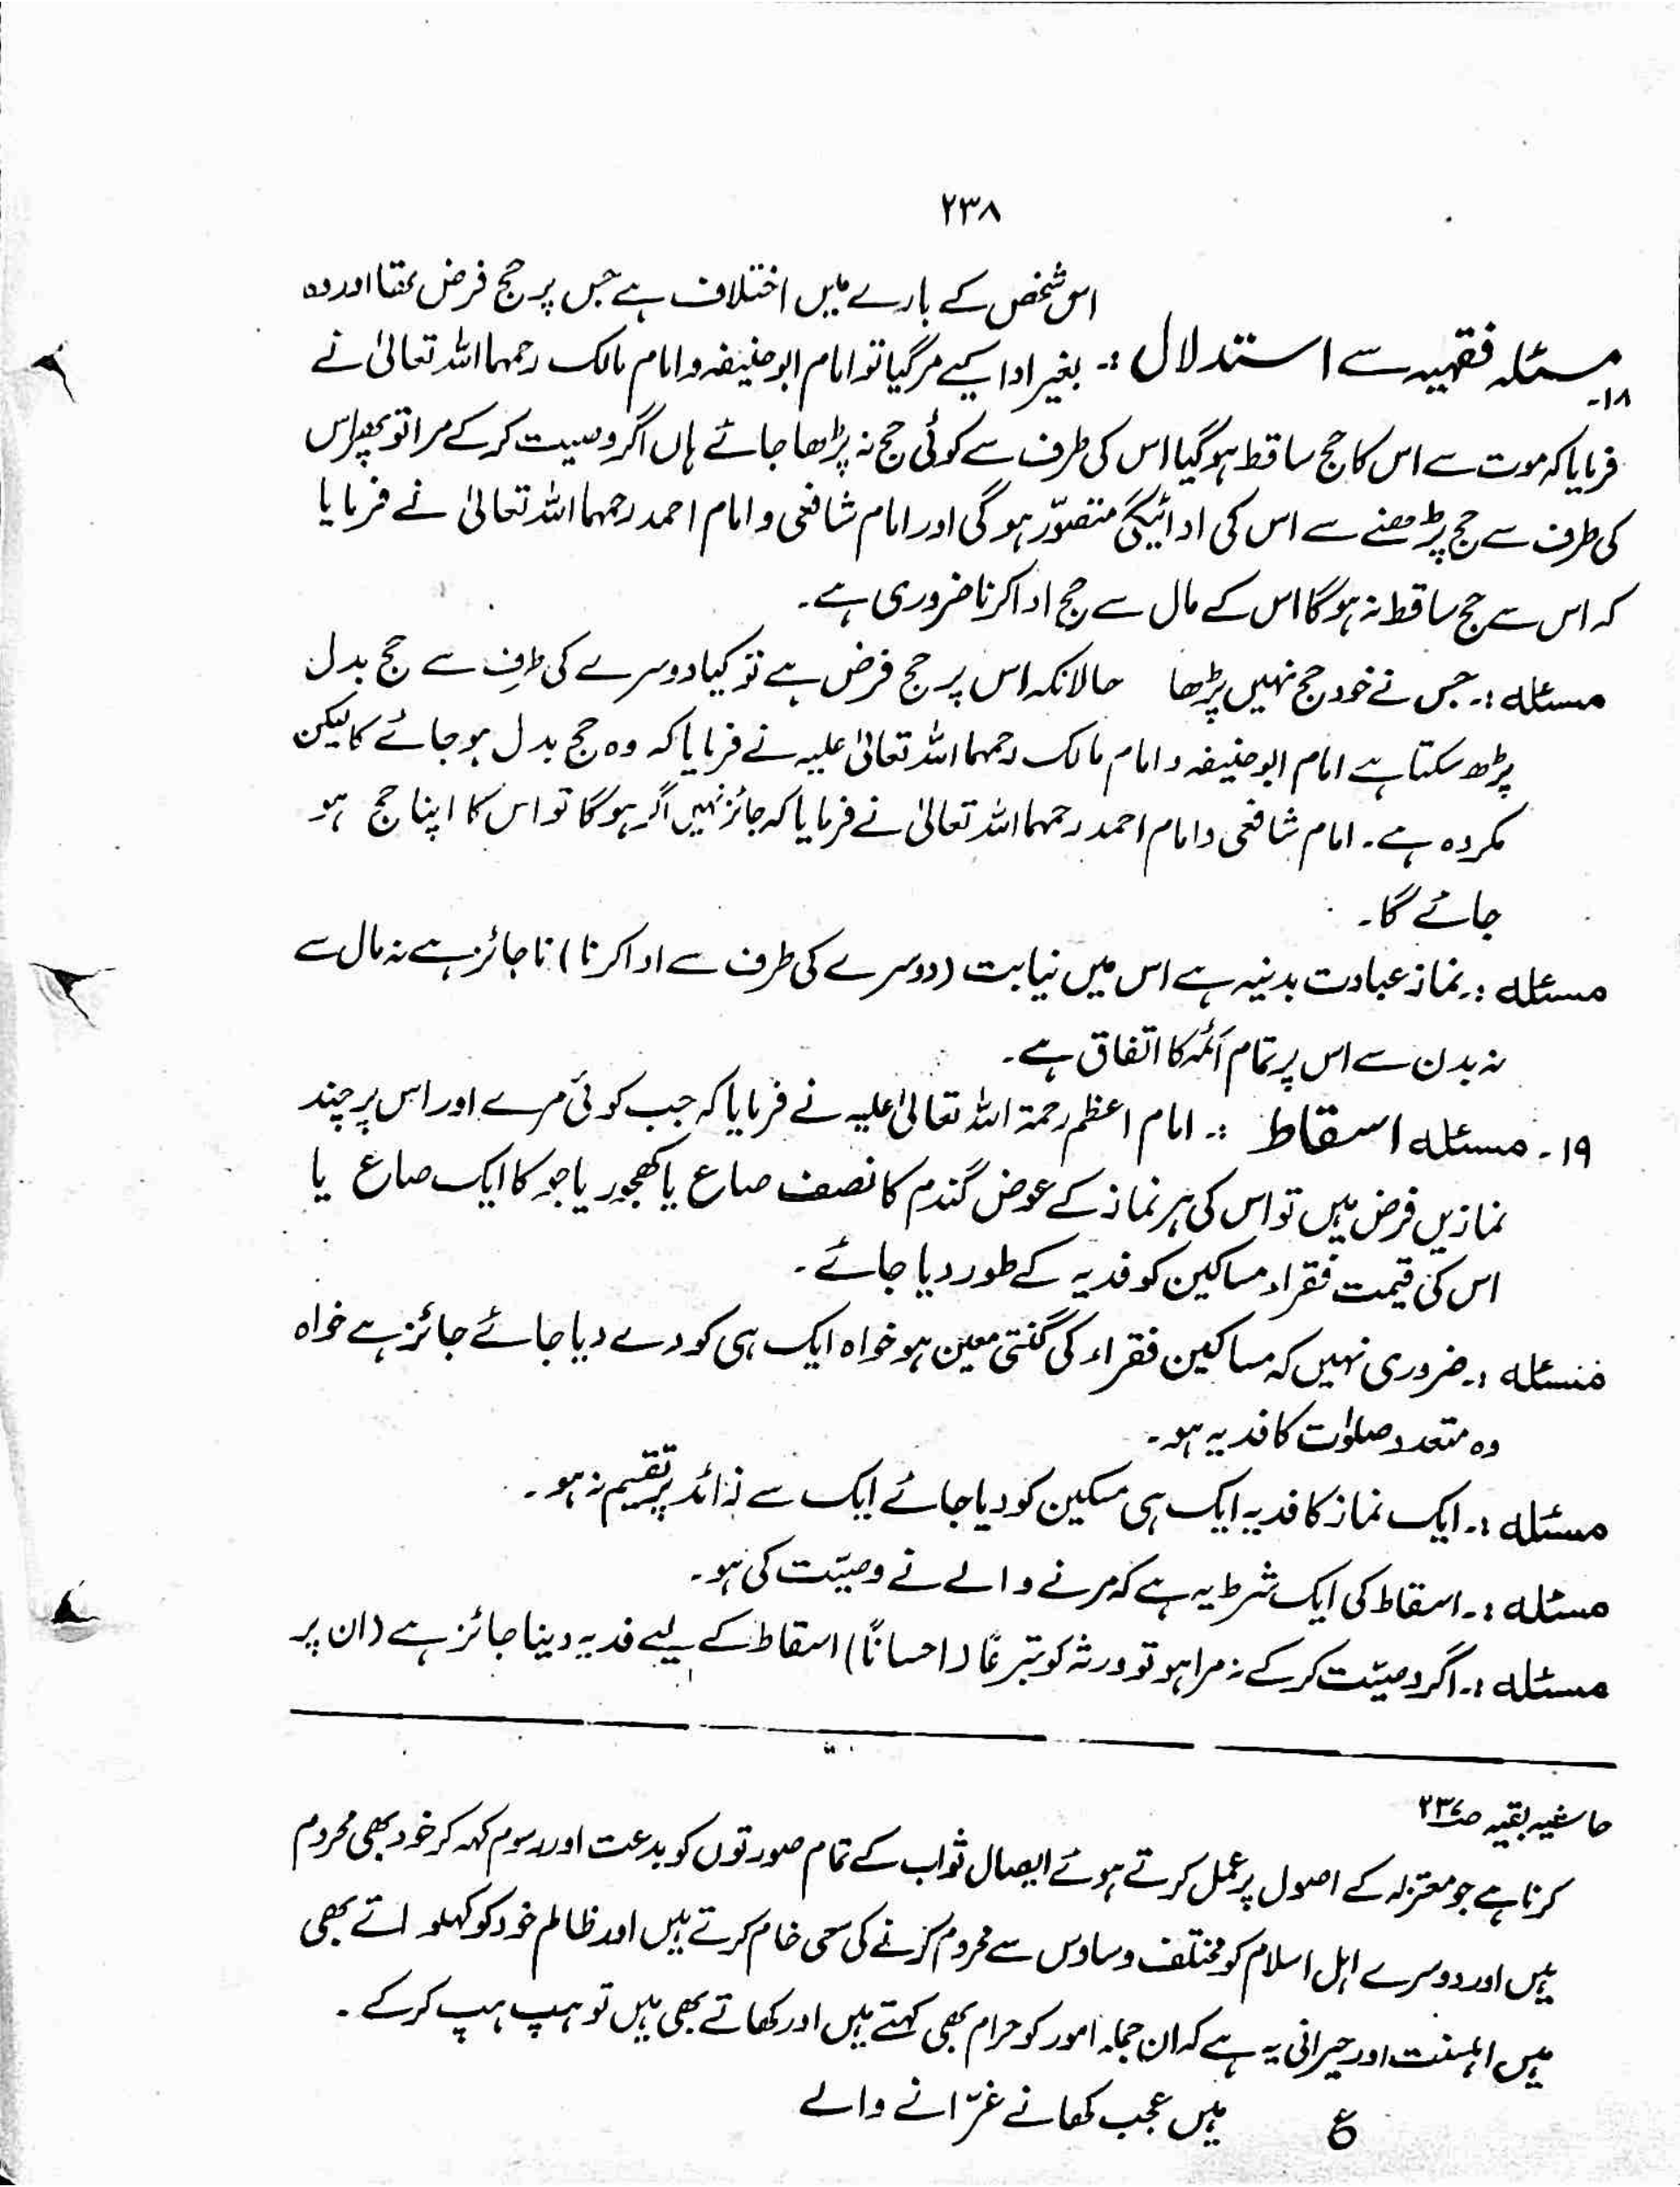 ۲۳۸
اس شخص کے بارے میں اختلاف ہے جس پر حج فرض تھا اور وہ
۱۸۔ مسئلہ فقہیہ سے استدلال :۔ بغیر ادا کیے مرگیا تو امام ابوحنیفہ و امام مالک رحمہما اللہ تعالیٰ نے
فرمایا کہ موت سے اس کا حج ساقط ہوگیا اس کی طرف سے کوئی حج نہ پڑھا جائے ہاں اگر وصیت کرکے مرا تو پھر اس
کی طرف سے حج پڑھنے سے اس کی ادائیگی متصوّر ہوگی اور امام شافعی و امام احمد رحمہما اللہ تعالیٰ نے فرمایا
کہ اس سے حج ساقط نہ ہوگا اس کے مال سے حج ادا کرنا ضروری ہے۔
مسئلہ :۔ جس نے خود حج نہیں پڑھا حالانکہ اس پر حج فرض ہے تو کیا دوسرے کی طرف سے حج بدل
پڑھ سکتا ہے امام ابوحنیفہ و امام مالک رحمہما اللہ تعالیٰ علیہ نے فرمایا کہ وہ حج بدل ہو جائے گا لیکن
مکروہ ہے۔ امام شافعی و امام احمد رحمہما اللہ تعالیٰ نے فرمایا کہ جائز نہیں اگر ہوگا تو اس کا اپنا حج ہو
جائے گا۔
مسئلہ :۔ نماز عبادت بدنیہ ہے اس میں نیابت (دوسرے کی طرف سے ادا کرنا) ناجائز ہے نہ مال سے
نہ بدن سے اس پر تمام آئمہ کا اتفاق ہے۔
۱۹۔ مسئلہ اسقاط :۔ امام اعظم رحمۃ اللہ تعالیٰ علیہ نے فرمایا کہ جب کوئی مرے اور اس پر چند
نمازیں فرض ہیں تو اس کی ہر نماز کے عوض گندم کا نصف صاع یا کھجور یا جو کا ایک صاع یا
اس کی قیمت فقراء مساکین کو فدیہ کے طور دیا جائے۔
مسئلہ :۔ ضروری نہیں کہ مساکین فقراء کی گنتی معین ہو خواہ ایک ہی کو دے دیا جائے جائز ہے خواہ
وہ متعدد صلوٰت کا فدیہ ہو۔
مسئلہ :۔ ایک نماز کا فدیہ ایک ہی مسکین کو دیا جائے ایک سے زائد پر تقسیم نہ ہو۔
مسئلہ :۔ اسقاط کی ایک شرط یہ ہے کہ مرنے والے نے وصیّت کی ہو۔
مسئلہ :۔ اگر وصیّت کرکے نہ مرا ہو تو ورثہ کو تبرعًا (احسانًا) اسقاط کے لیے فدیہ دینا جائز ہے (ان پر
حاشیہ بقیہ صـ۲۳۷
کرنا ہے جو معتزلہ کے اصول پر عمل کرتے ہوئے ایصال ثواب کے تمام صورتوں کو بدعت اور رسوم کہہ کر خود بھی محروم
ہیں اور دوسرے اہل اسلام کو مختلف وساوس سے محروم کرنے کی سعی خام کرتے ہیں اور ظالم خود کو کہلواتے بھی
ہیں اہلسنت اور حیرانی یہ ہے کہ ان جملہ امور کو حرام بھی کہتے ہیں اور کھاتے بھی ہیں تو ہپ ہپ کرکے۔
ع ہیں عجب کھانے غرّانے والے